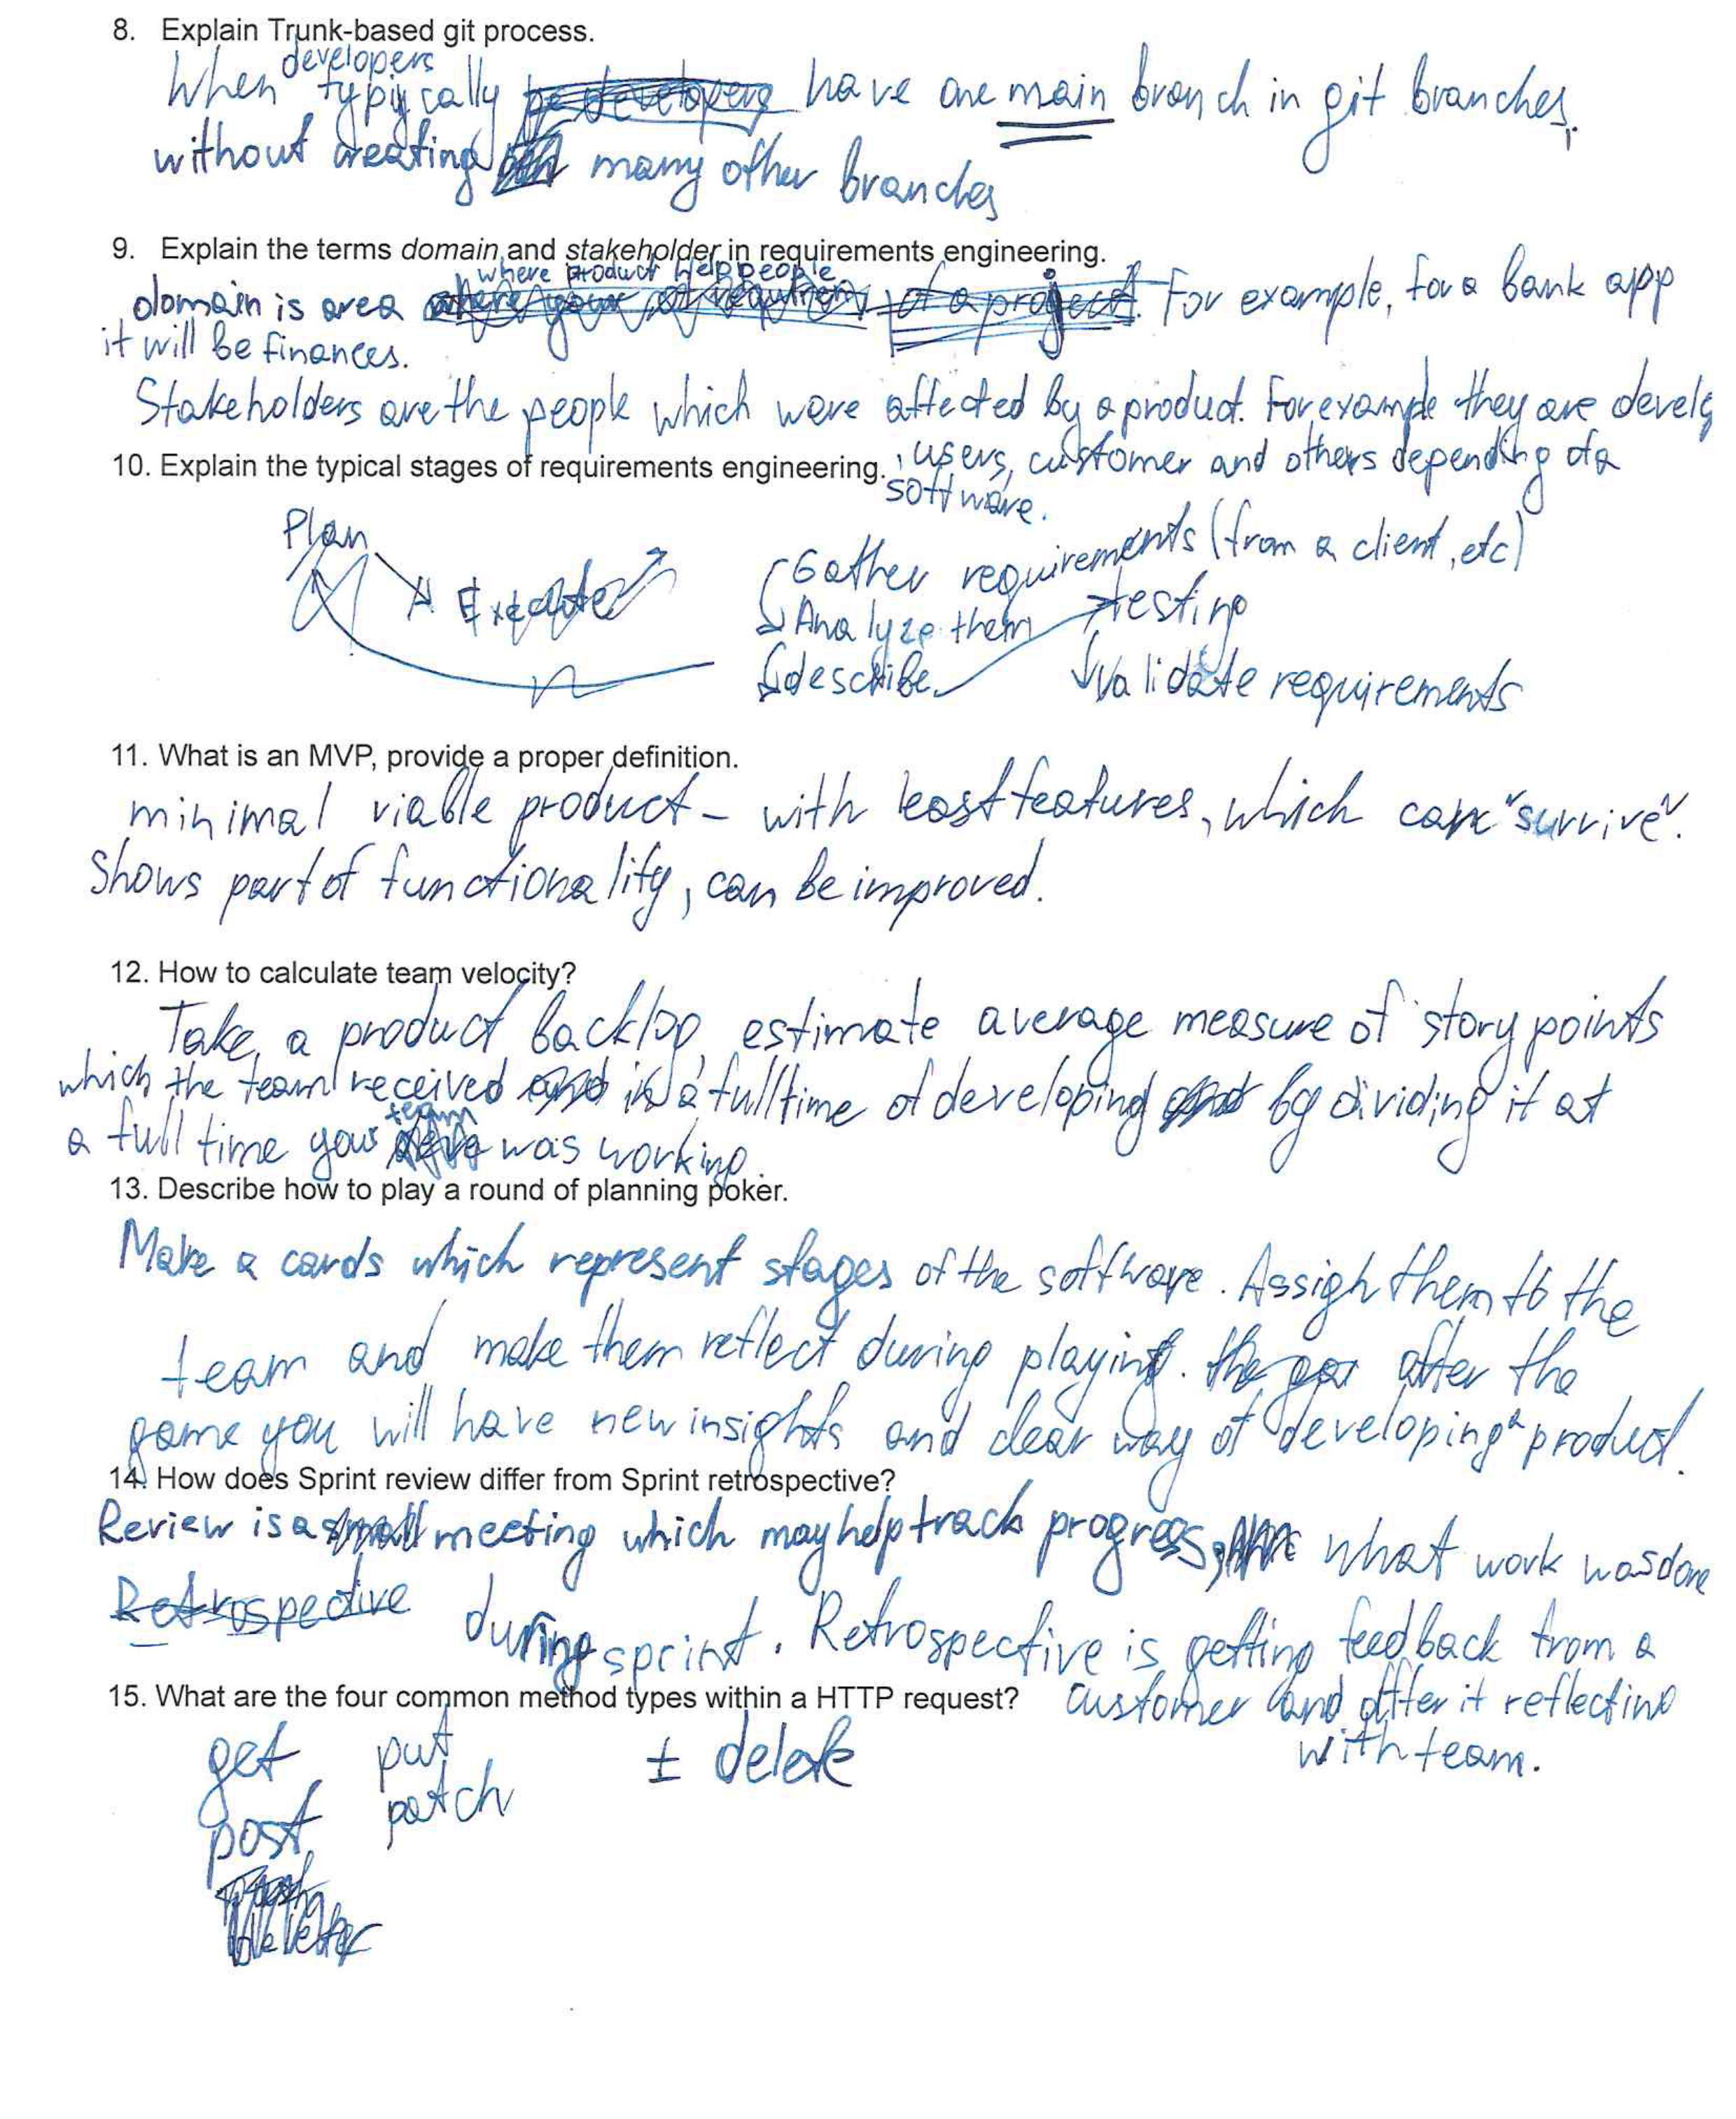 8. Explain Trunk-based git process.
When developers typically have one main branch in git branches,
without creating many other branches
9. Explain the terms domain and stakeholder in requirements engineering.
domain is area where product help people. For example, for a bank app
it will be finances.
Stakeholders are the people which were affected by a product. For example they are develp
, users, customer and others depending of a
software.
10. Explain the typical stages of requirements engineering.
Plan
Execute
Gather requirements (from a client, etc)
Analyze them
describe
testing
validate requirements
11. What is an MVP, provide a proper definition.
minimal viable product - with least features, which can "survive".
Shows part of functionality, can be improved.
12. How to calculate team velocity?
Take a product backlog, estimate average measure of story points
which the team received in a full time of developing by dividing it at
a full time your team was working.
13. Describe how to play a round of planning poker.
Make a cards which represent stages of the software. Assign them to the
team and make them reflect during playing. after the
game you will have new insights and clear way of developing a product.
14. How does Sprint review differ from Sprint retrospective?
Review is a meeting which may help track progress, what work was done
Retrospective during sprint. Retrospective is getting feedback from a
customer and after it reflecting
with team.
15. What are the four common method types within a HTTP request?
get put ± delete
post patch